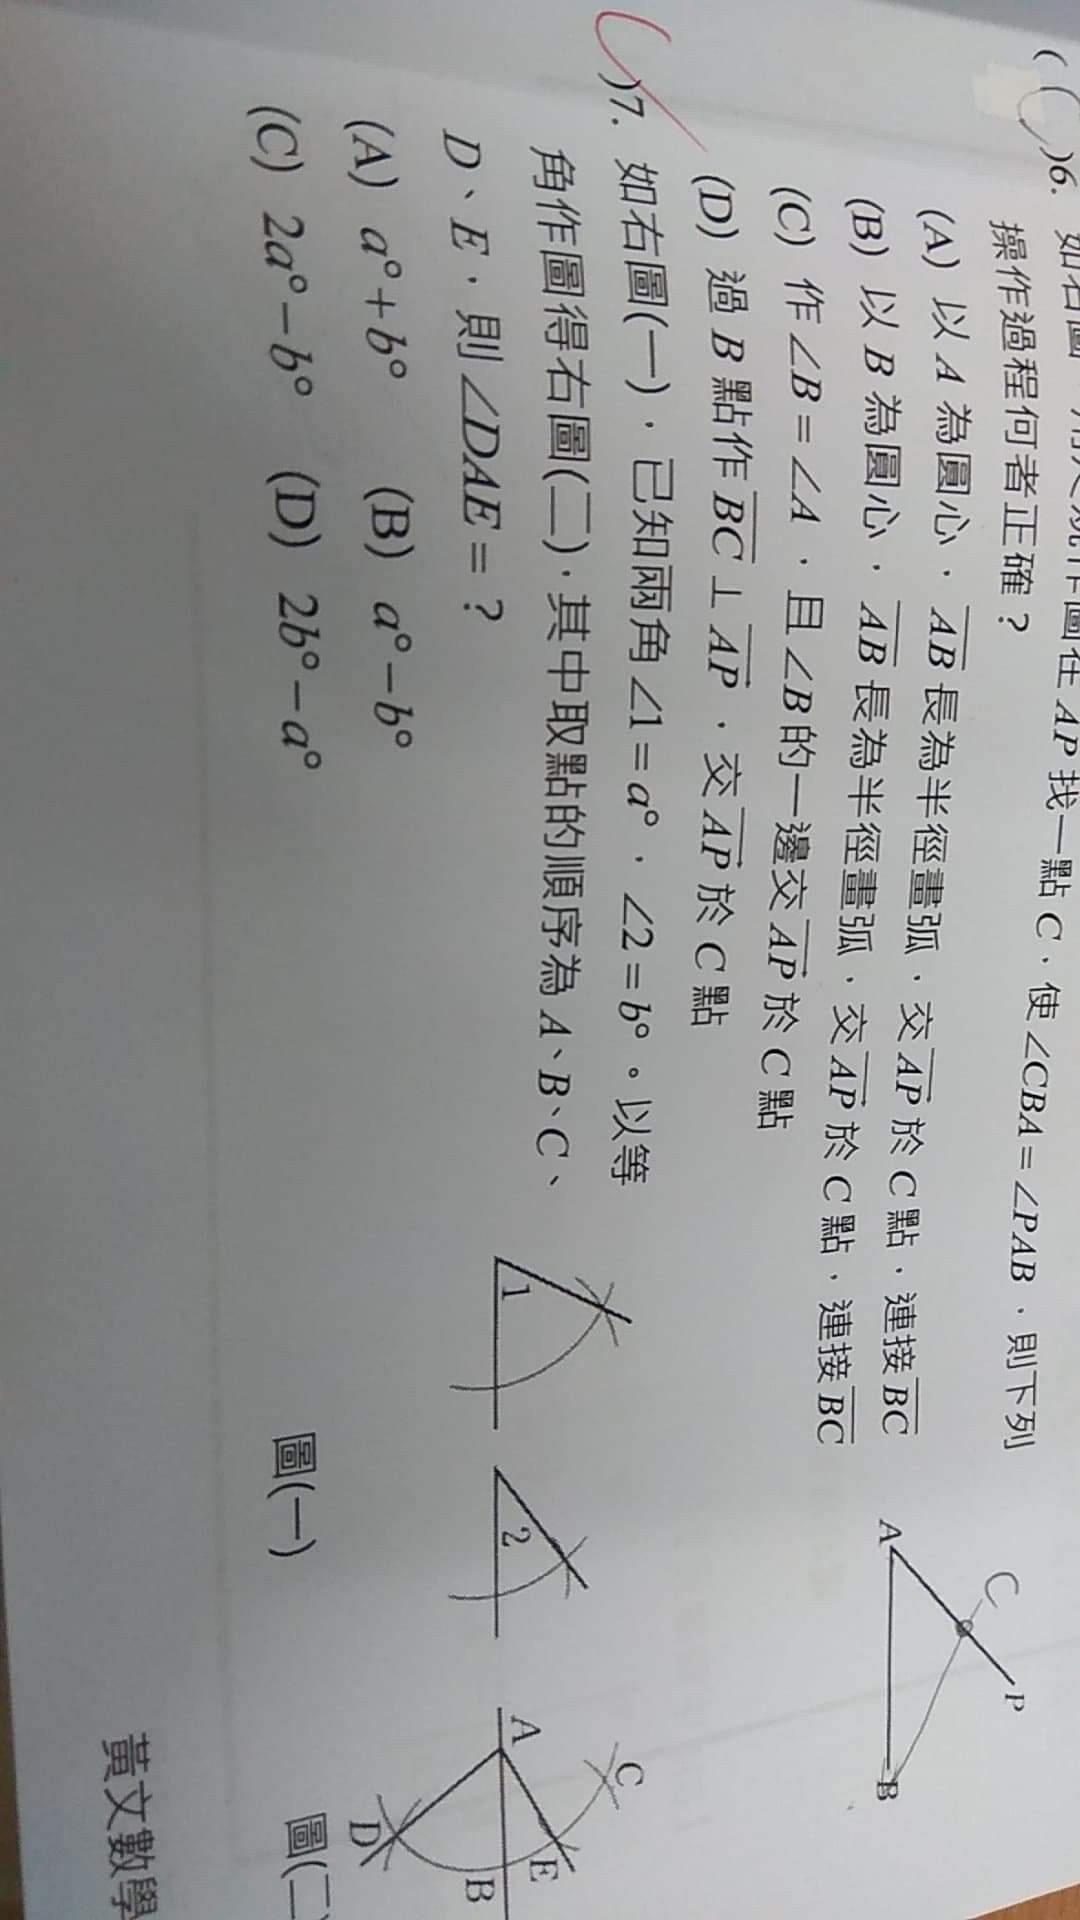 ( C )6. 如右圖,用尺規作圖在 AP 找一點 C,使 ∠CBA=∠PAB,則下列
操作過程何者正確?
(A) 以 A 為圓心,AB 長為半徑畫弧,交 AP 於 C 點,連接 BC
(B) 以 B 為圓心,AB 長為半徑畫弧,交 AP 於 C 點,連接 BC
(C) 作 ∠B=∠A,且 ∠B 的一邊交 AP 於 C 點
(D) 過 B 點作 BC⊥AP,交 AP 於 C 點
C
P
A
B
)7. 如右圖(一),已知兩角 ∠1=a°,∠2=b°。以等
角作圖得右圖(二),其中取點的順序為 A、B、C、
D、E,則 ∠DAE=?
(A) a°+b° (B) a°-b°
(C) 2a°-b° (D) 2b°-a°
1
2
圖(一)
C
A
E
B
D
圖(二)
黃文數學